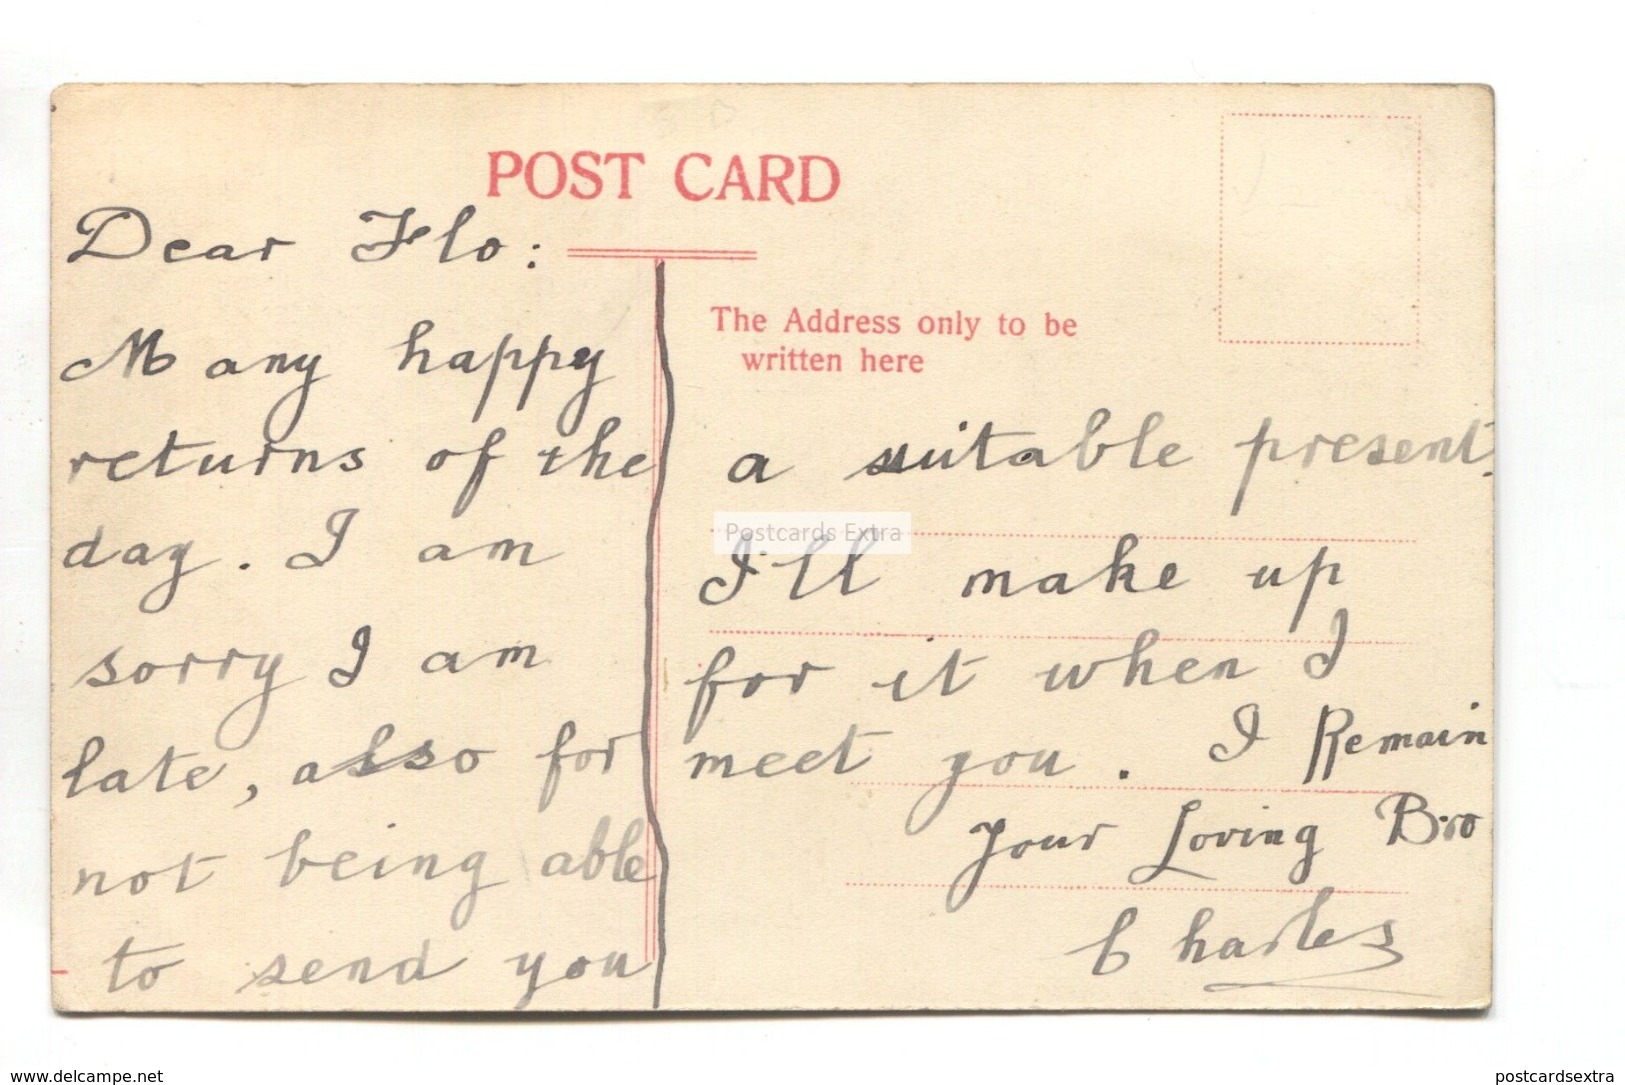 POST CARD
Dear Flo:
Many happy
returns of the
day. I am
sorry I am
late, also for
not being able
to send you
The Address only to be
written here
a suitable present.
Postcards Extra
I'll make up
for it when I
meet you. I Remain
Your Loving Bro
Charles
www.delcampe.net
postcardsextra